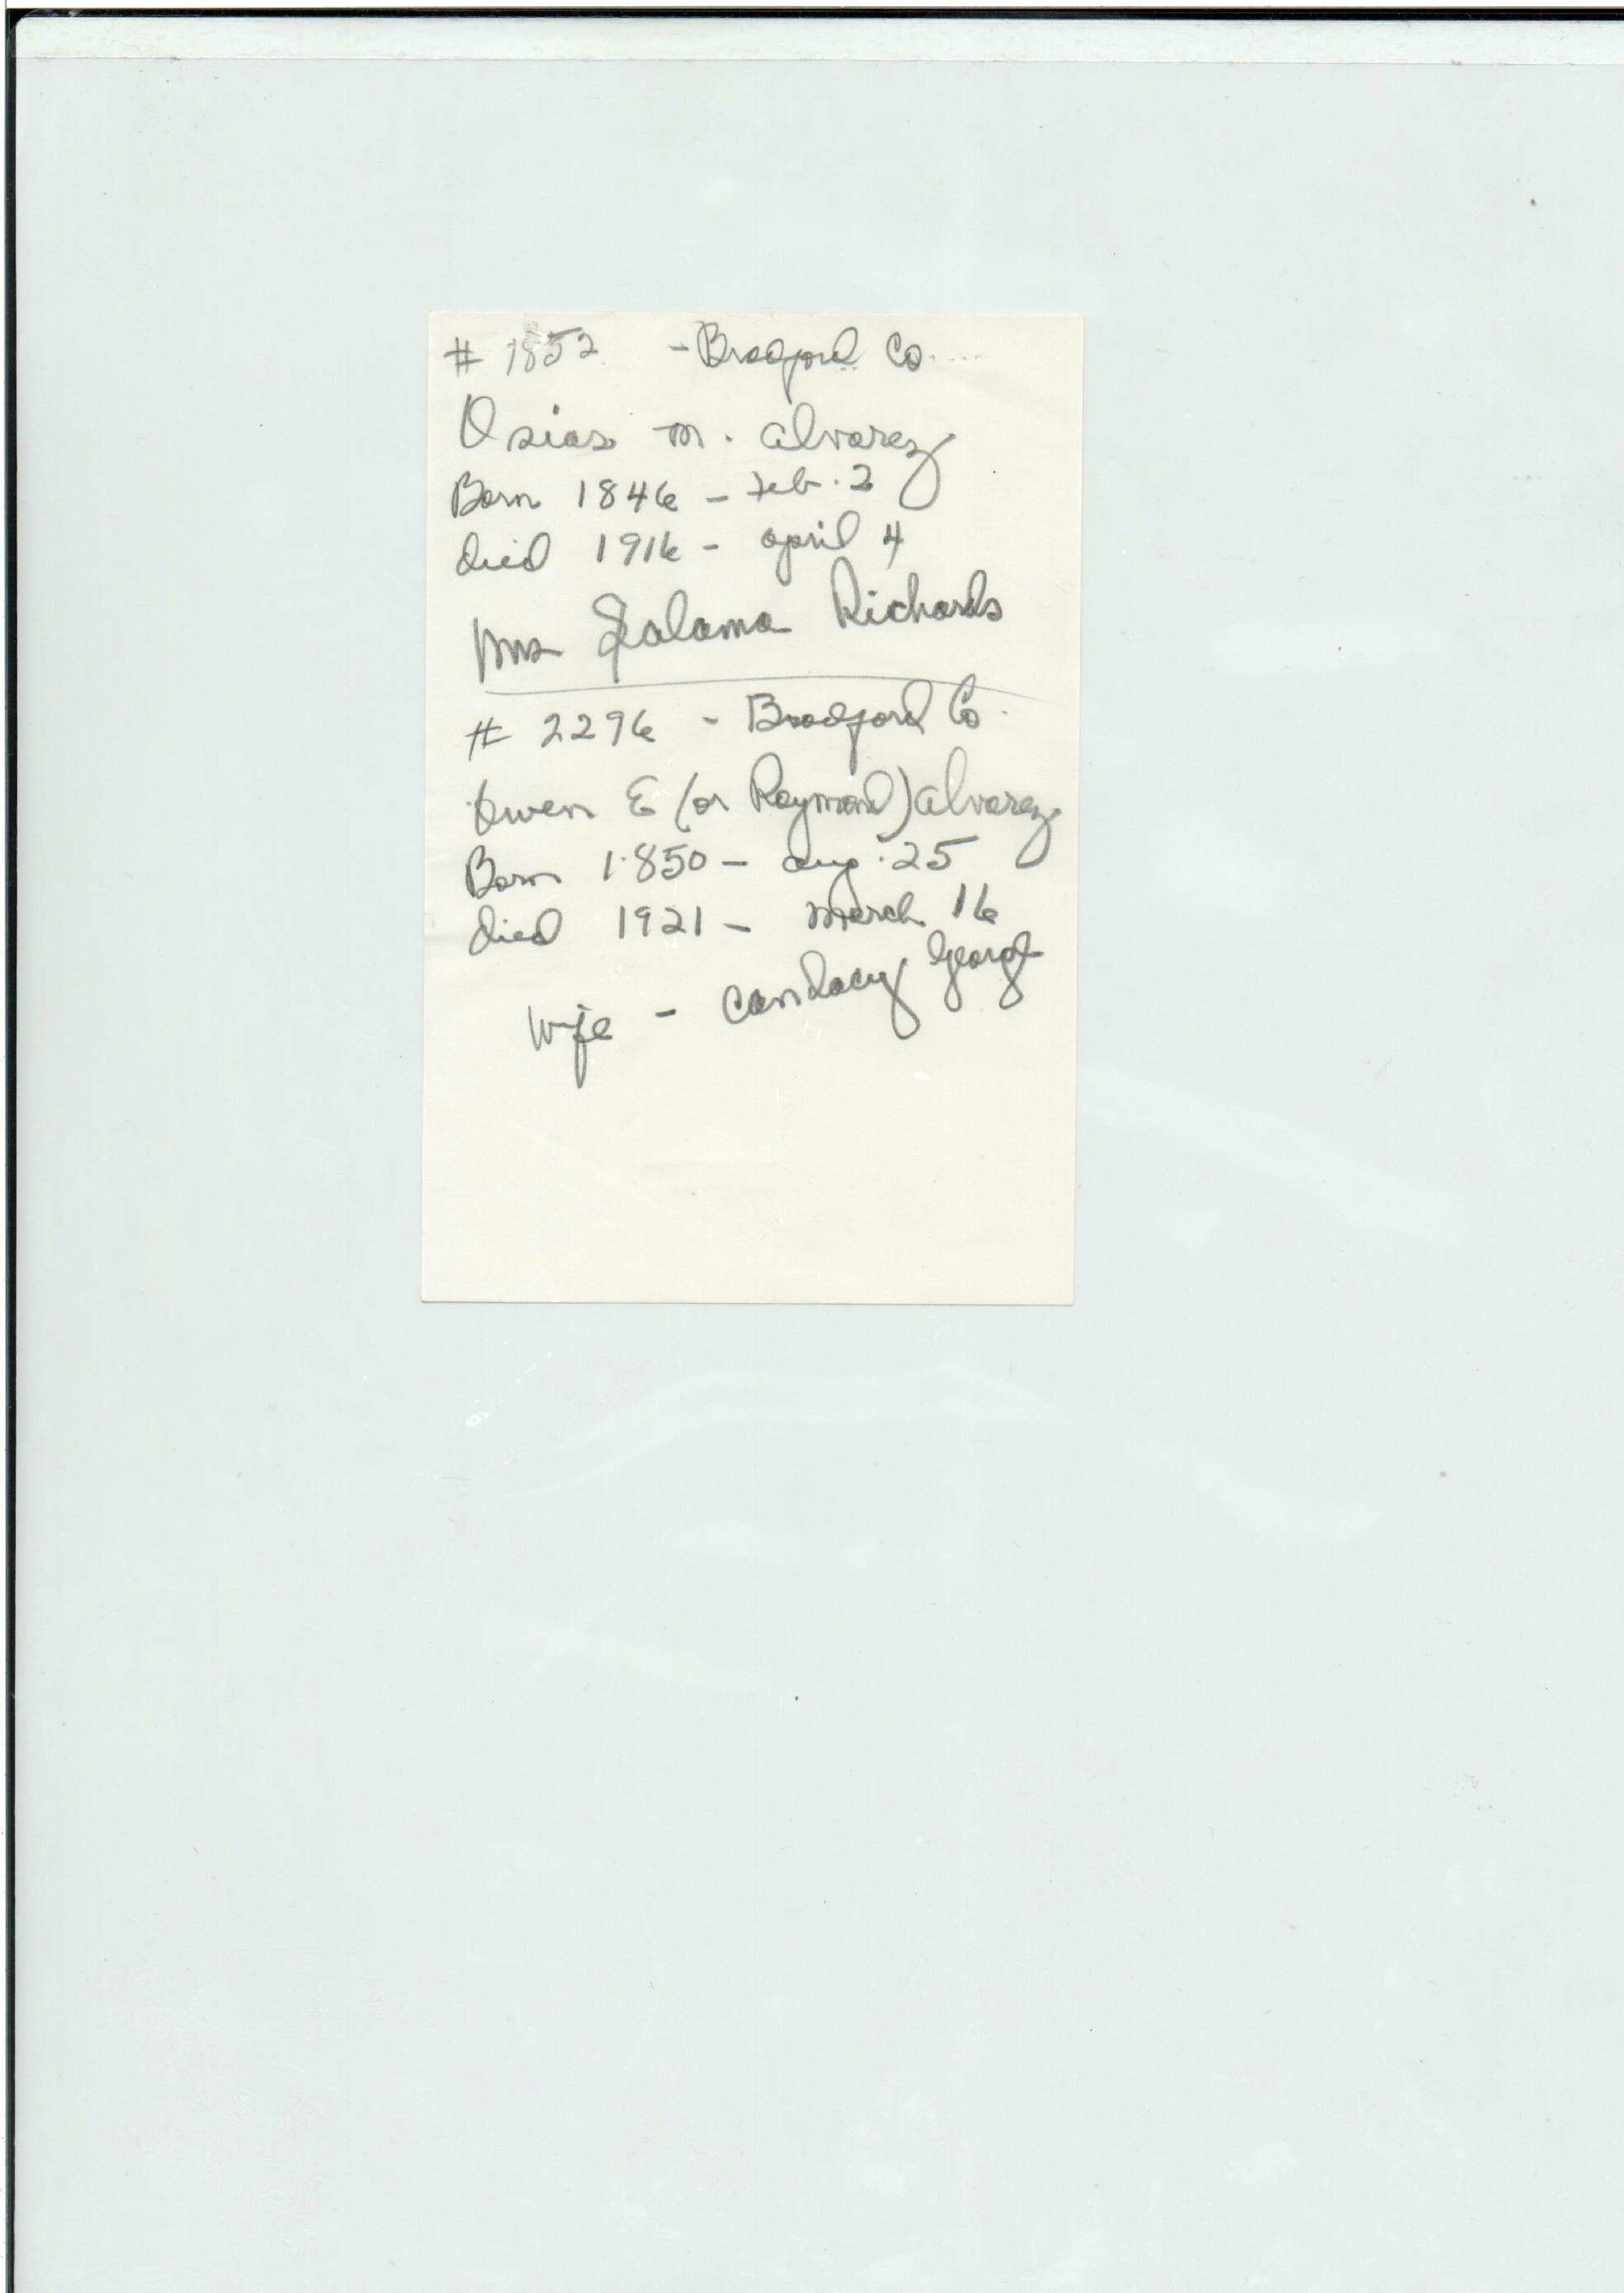 # 1852 - Bradford Co.
Osias M. Alvarez
Born 1846 - Feb. 2
died 1916 - april 4
Mrs Salama Richards
# 2296 - Bradford Co.
Owen E (or Raymond) Alvarez
Born 1850 - aug. 25
died 1921 - March 16
Wife - Candacy George